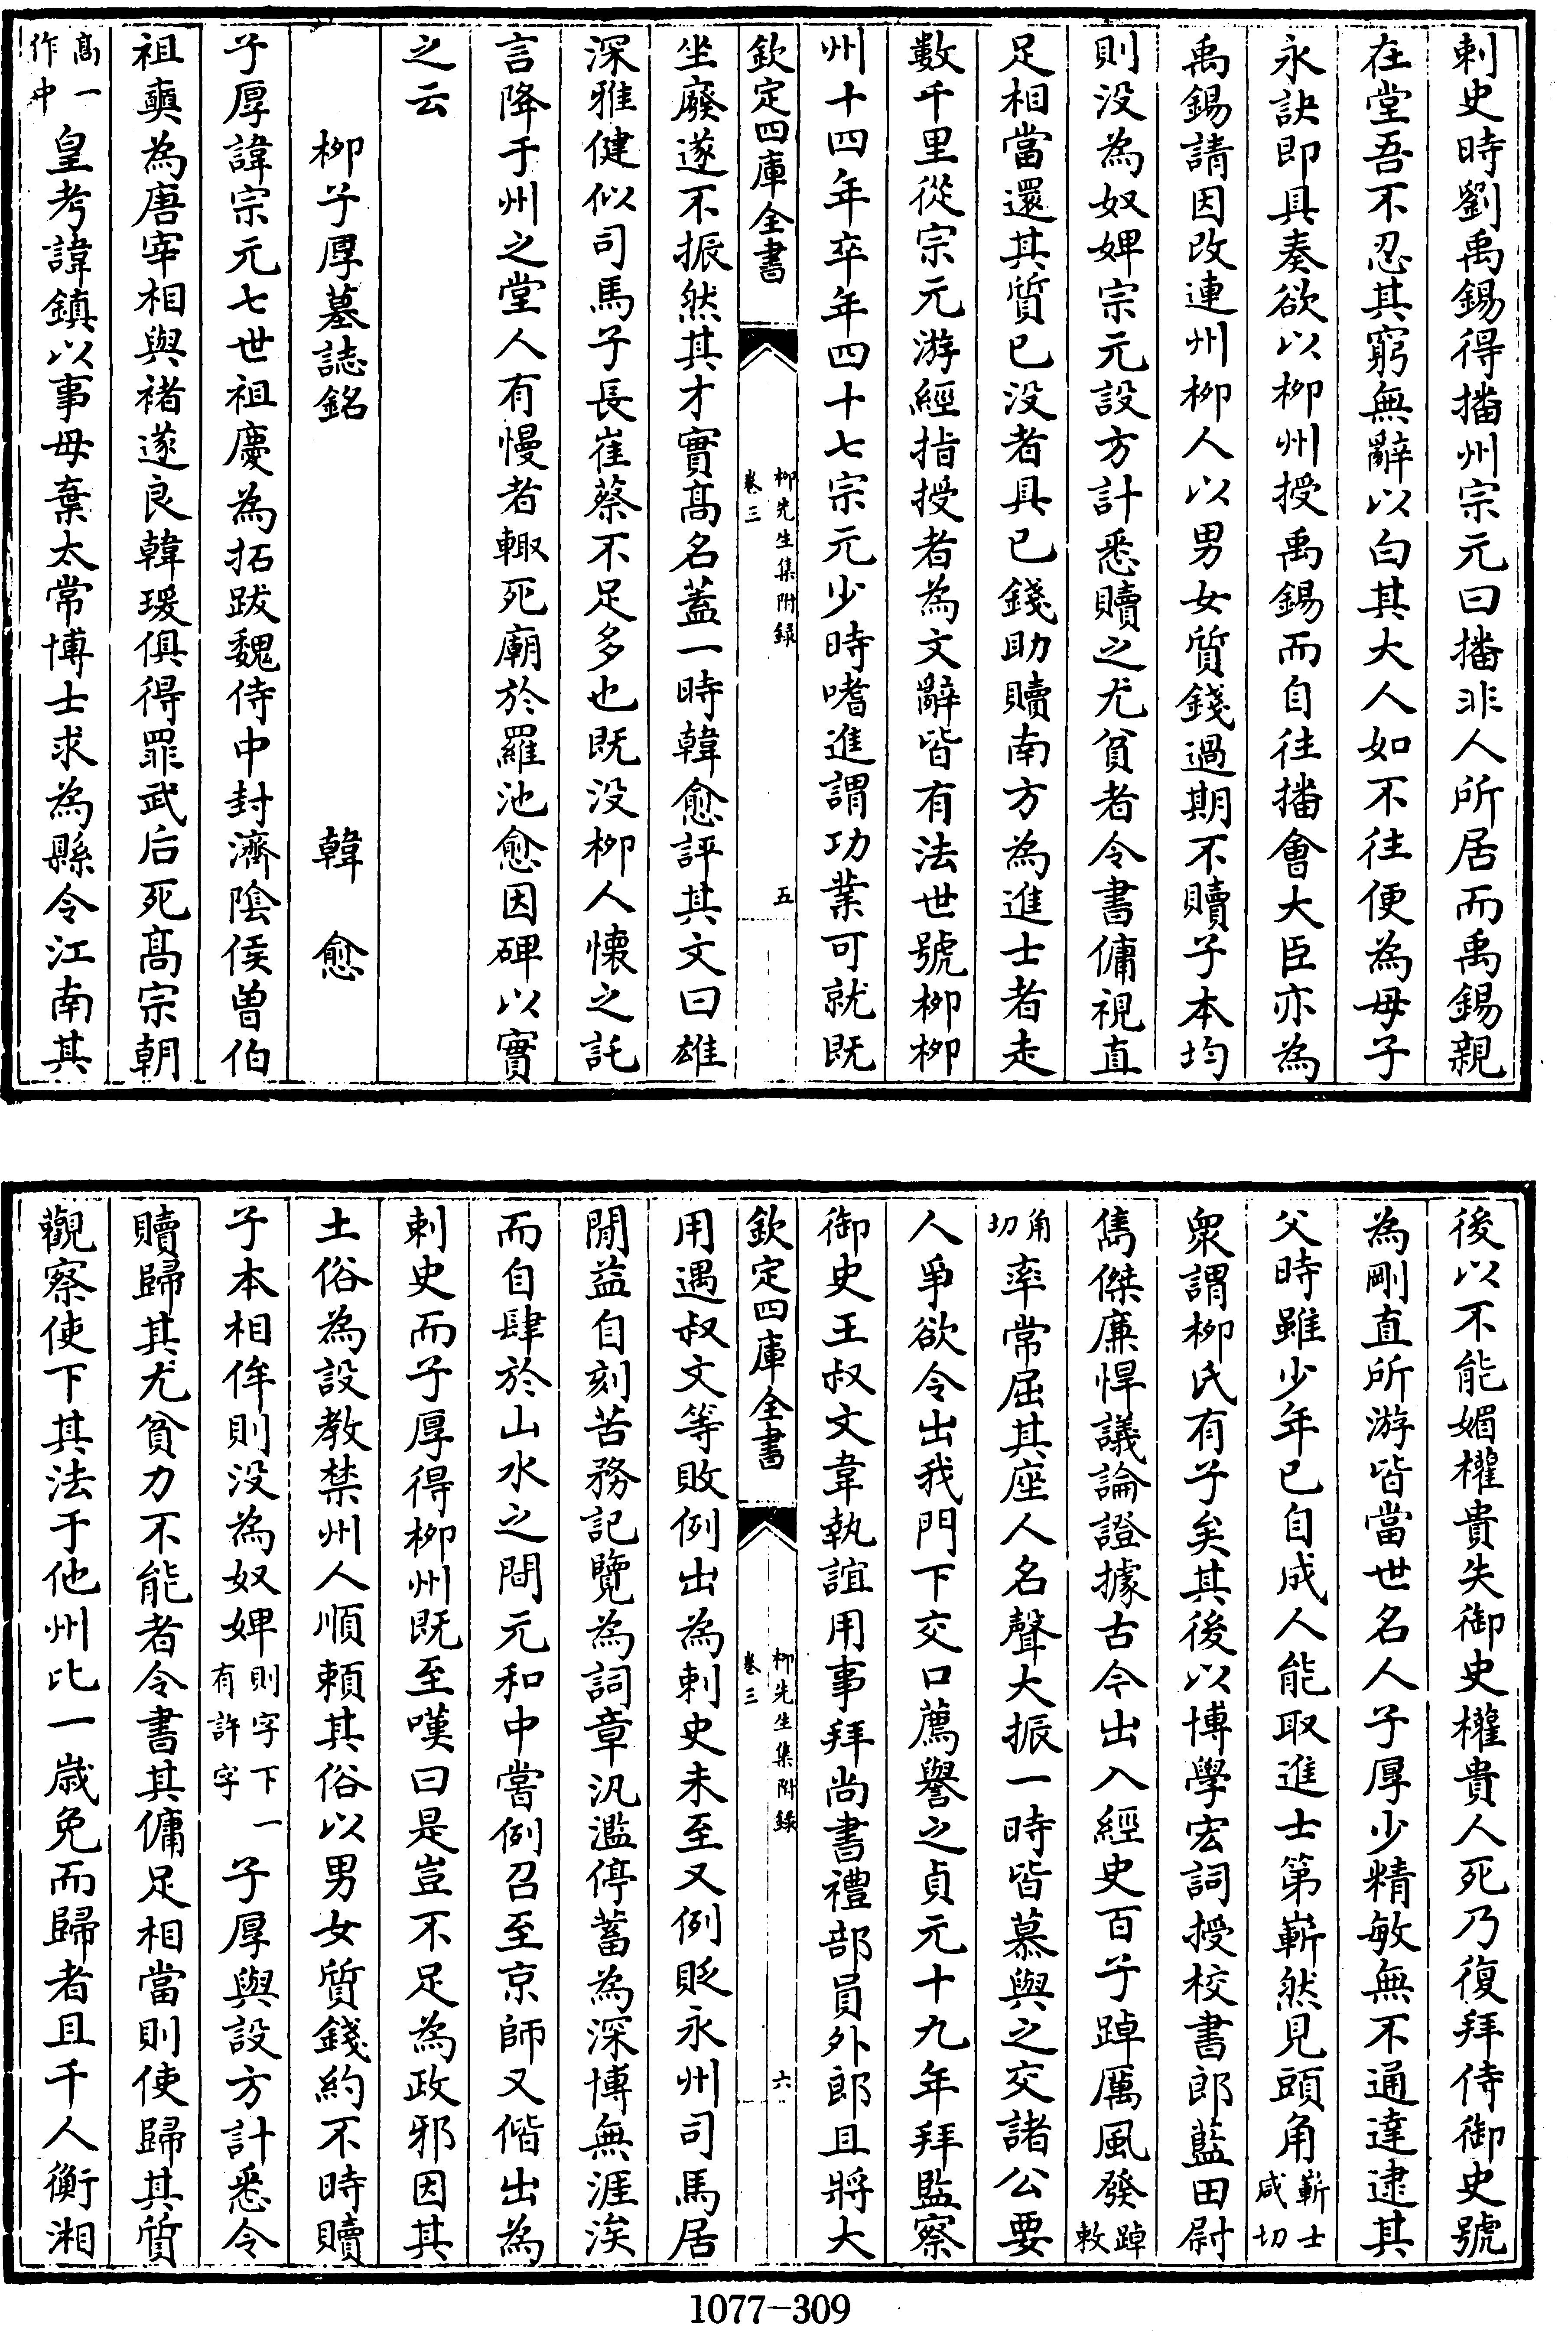 刺史時劉禹錫得播州宗元曰播非人所居而禹錫親
在堂吾不忍其窮無辭以白其大人如不往便為母子
永訣即具奏欲以柳州授禹錫而自往播會大臣亦為
禹錫請因改連州柳人以男女質錢過期不贖子本均
則没為奴婢宗元設方計悉贖之尤貧者令書傭視直
足相當還其質已没者具已錢助贖南方為進士者走
數千里從宗元游經指授者為文辭皆有法世號柳柳
州十四年卒年四十七宗元少時嗜進謂功業可就既
欽定四庫全書
柳先生集附録
卷三
五
坐廢遂不振然其才實髙名蓋一時韓愈評其文曰雄
深雅健似司馬子長崔蔡不足多也既没柳人懷之託
言降于州之堂人有慢者輙死廟於羅池愈因碑以實
之云
柳子厚墓誌銘 韓愈
子厚諱宗元七世祖慶為拓跋魏侍中封濟隂侯曽伯
祖奭為唐宰相與禇遂良韓瑗俱得罪武后死髙宗朝
髙一作中皇考諱鎮以事母棄太常博士求為縣令江南其
後以不能媚權貴失御史權貴人死乃復拜侍御史號
為剛直所游皆當世名人子厚少精敏無不通達逮其
父時雖少年已自成人能取進士第嶄然見頭角嶄士咸切
衆謂柳氏有子矣其後以博學宏詞授校書郎藍田尉
雋傑廉悍議論證據古今出入經史百子踔厲風發踔敕
角切率常屈其座人名聲大振一時皆慕與之交諸公要
人爭欲令出我門下交口薦譽之貞元十九年拜監察
御史王叔文韋執誼用事拜尚書禮部員外郎且將大
欽定四庫全書
柳先生集附録
卷三
六
用遇叔文等敗例出為刺史未至又例貶永州司馬居
閒益自刻苦務記覽為詞章汎濫停蓄為深博無涯涘
而自肆於山水之間元和中嘗例召至京師又偕出為
刺史而子厚得柳州既至嘆曰是豈不足為政邪因其
土俗為設教禁州人順頼其俗以男女質錢約不時贖
子本相侔則没為奴婢則字下一有許字子厚與設方計悉令
贖歸其尤貧力不能者令書其傭足相當則使歸其質
觀察使下其法于他州比一歳免而歸者且千人衡湘
1077-309